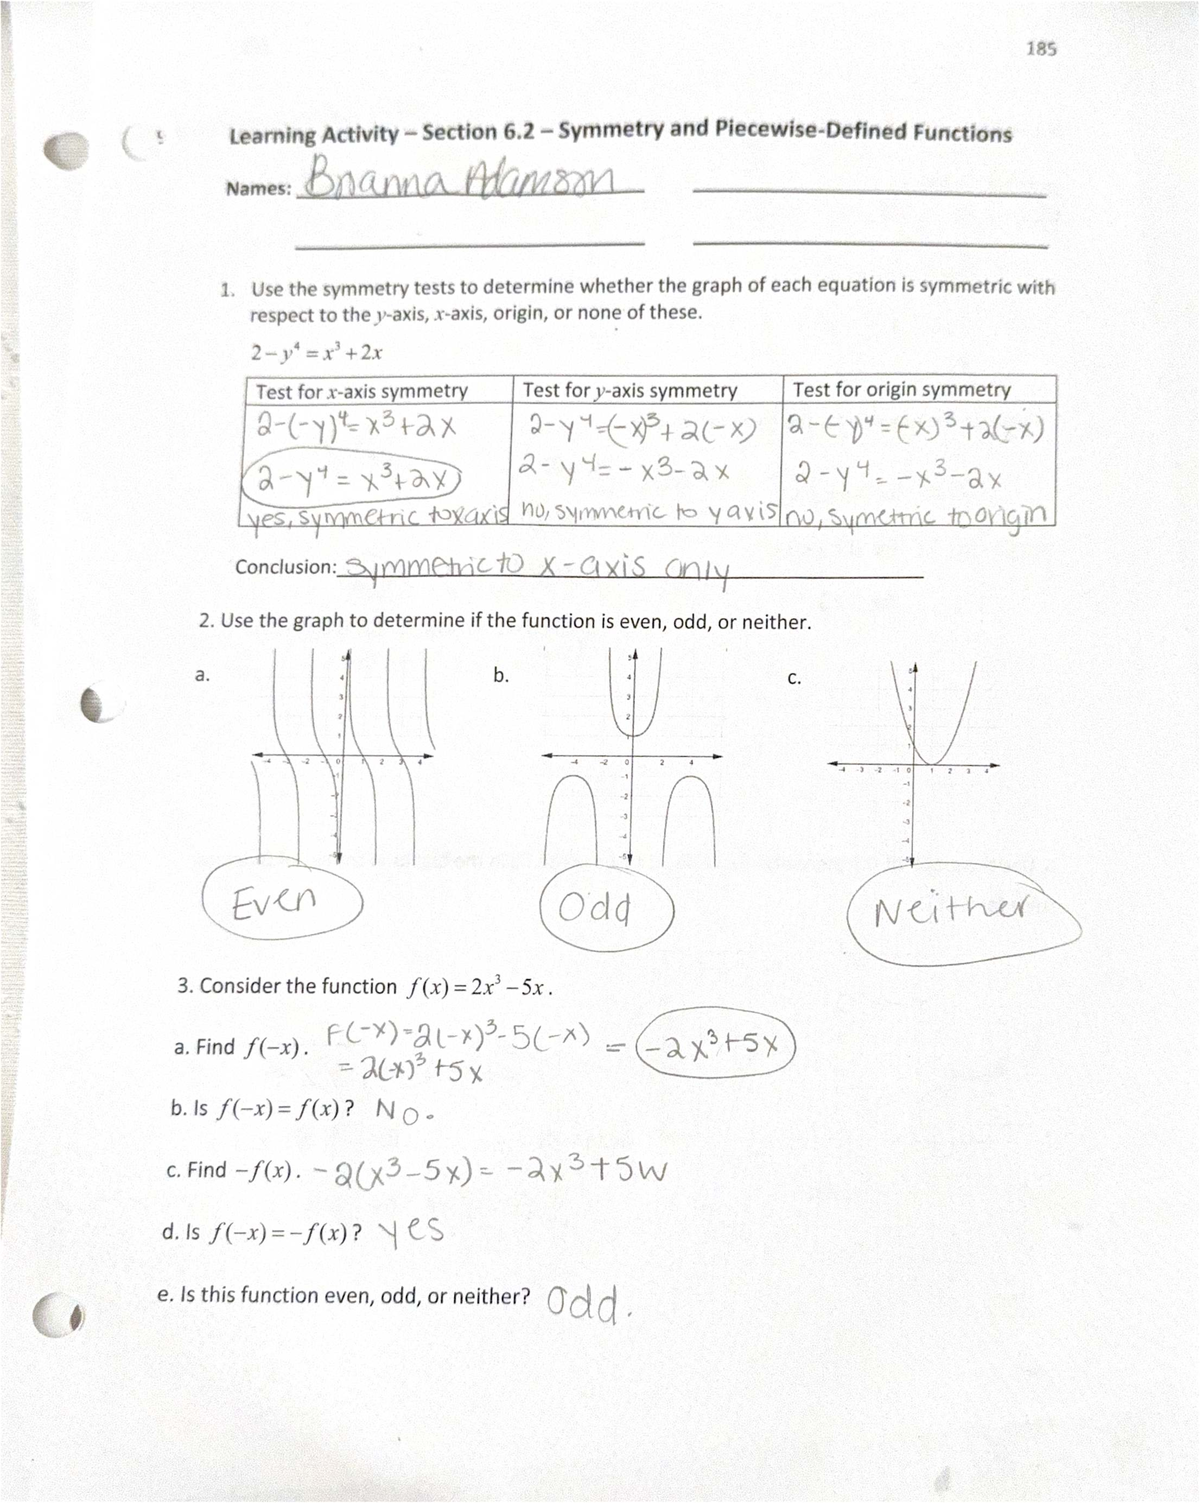 185
Learning Activity – Section 6.2 – Symmetry and Piecewise-Defined Functions
Names: Brianna Adamson
1. Use the symmetry tests to determine whether the graph of each equation is symmetric with
respect to the y-axis, x-axis, origin, or none of these.
2 – y⁴ = x³ + 2x
Test for x-axis symmetry Test for y-axis symmetry Test for origin symmetry
2-(-y)⁴= x³+2x 2-y⁴=(-x)³+2(-x) 2-(-y)⁴=(-x)³+2(-x)
2-y⁴ = x³+2x 2-y⁴= - x3-2x 2-y⁴= -x³-2x
yes, symmetric to x axis no, symmetric to y axis no, symettric to origin
Conclusion: Symmetric to x-axis only
2. Use the graph to determine if the function is even, odd, or neither.
a. b. c.
Even Odd Neither
3. Consider the function f(x) = 2x³ – 5x.
a. Find f(–x). F(-x)=2(-x)³-5(-x) = -2x³+5x
= 2(-x)³+5x
b. Is f(–x) = f(x)? No.
c. Find –f(x). -2(x³-5x) = -2x³+5w
d. Is f(–x) = –f(x)? yes
e. Is this function even, odd, or neither? Odd.